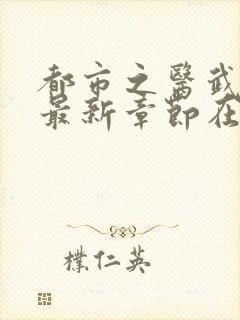 都市之醫武
最新章節在
樸仁英